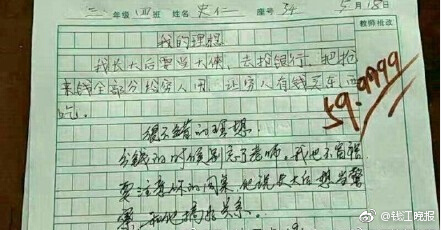 三年级 四班 姓名 史仁 座号 34 5月18日
教师批改
我的理想
我长大后要当大侠，去抢银行，把抢
来钱全部分给穷人用，让穷人有钱买东西
吃。
59.9999
很不错的理想
分钱的时候别忘了老师。我也不富裕
要注意你的同桌他说长大后想当警
察，和他搞好关系。
@钱江晚报